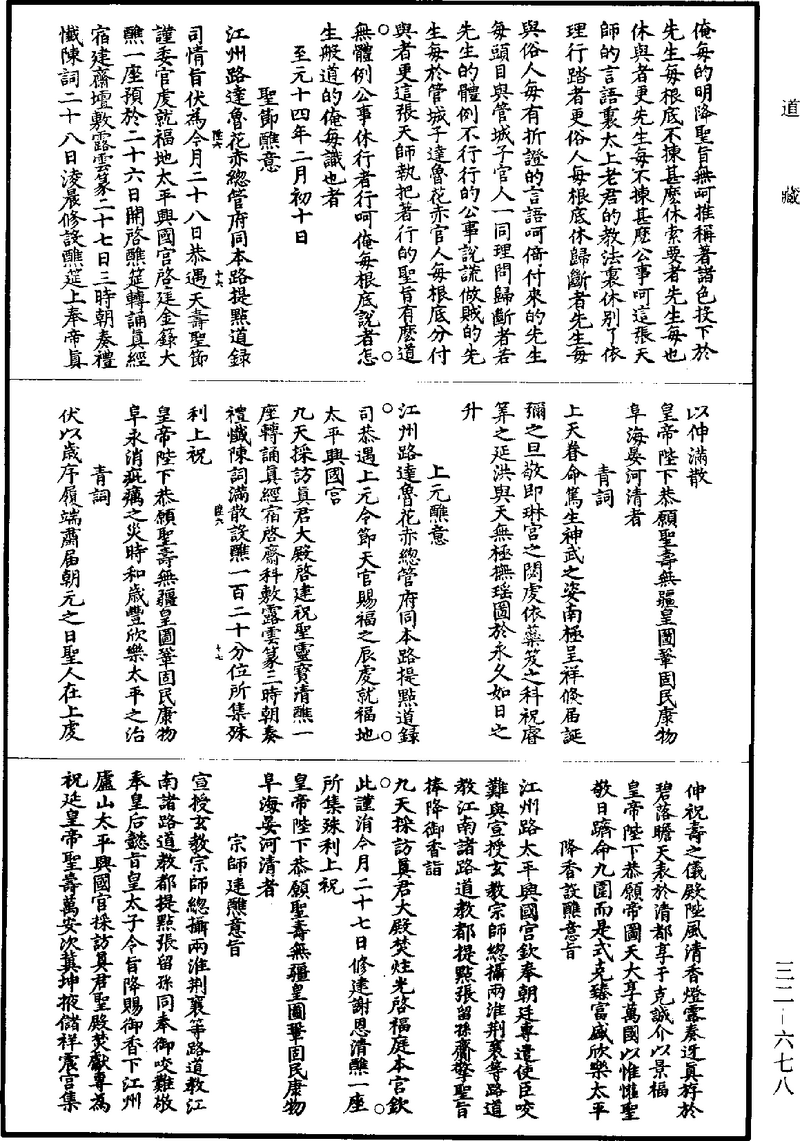 道藏
俺每的明降聖旨無呵推稱著諸色投下於
先生每根底不揀甚麽休索要者先生每也
休與者更先生每不揀甚麽公事呵這張天
師的言語裏太上老君的教法裏休别了依
理行踏者更俗人每根底休歸斷者先生每
與俗人每有折證的言語呵倚付來的先生
每頭目與管城子官人一同理問歸斷者若
先生的體例不行行的公事說謊做賊的先
生每於管城子達魯花赤官人每根底分付
與者更這張天師執把著行的聖旨有麽道
無體例公事休行者行呵俺每根底說者怎
生般道的俺每識也者
至元十四年二月初十日
聖節醮意
江州路達魯花赤總管府同本路提點道録
司情旨伏為今月二十八日恭遇天壽聖節
謹委官虔就福地太平興國宫啓建金錄大
醮一座預於二十六日開啓醮筵轉誦真經
宿建齋壇敷露雲篆二十七日三時朝奏禮
懺陳詞二十八日淩晨修設醮筵上奉帝真
以伸滿散
皇帝陛下恭願聖壽無疆皇圖鞏固民康物
阜海晏河清者
青詞
上天眷命篤生神武之姿南極呈祥倐届誕
彌之旦敬即琳宫之閟虔依蘂笈之科祝睿
筭之延洪與天無極撫瑶圖於永久如日之
升
上元醮意
江州路達魯花赤總管府同本路提點道録
司恭遇上元令節天官賜福之辰虔就福地
太平興國宫
九天採訪真君大殿啓建祝聖靈寳清醮一
座轉誦真經宿啓齋科敷露雲篆三時朝奏
禮懺陳詞滿散設醮一百二十分位所集殊
利上祝
皇帝陛下恭願聖壽無疆皇圖鞏固民康物
阜永消疵癘之災時和歲豐欣樂太平之治
青詞
伏以歲序履端肅届朝元之日聖人在上虔
伸祝壽之儀殿陛風清香燈露奏迓真斿於
碧落瞻天表於清都享于克誠介以景福
皇帝陛下恭願帝圖天大享萬國以惟懽聖
敬日躋命九圍而是式克臻富盛欣樂太平
降香設醮意旨
江州路太平興國宫欽奉朝廷專遣使臣咬
難與宣授玄教宗師總攝兩淮荆襄等路道
教江南諸路道教都提點張留孫齎擎聖旨
捧降御香詣
九天採訪真君大殿焚炷光啓福庭本宫欽
此謹涓今月二十七日修建謝恩清醮一座
所集殊利上祝
皇帝陛下恭願聖壽無疆皇圖鞏固民康物
阜海晏河清者
宗師建醮意旨
宣授玄教宗師總攝兩淮荆襄等路道教江
南諸路道教都提點張留孫同奉御咬難敬
奉皇后懿旨皇太子令旨降賜御香下江州
廬山太平興國宫採訪真君聖殿焚獻專為
祝延皇帝聖壽萬安次冀坤掖儲祥震宫集
三二—六七八